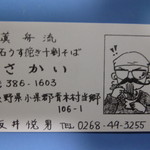 萬舟流
石うす挽き十割そば
さかい
386-1603
長野県小県郡青木村当郷
106-1
坂井悦男 TEL 0268-49-3255